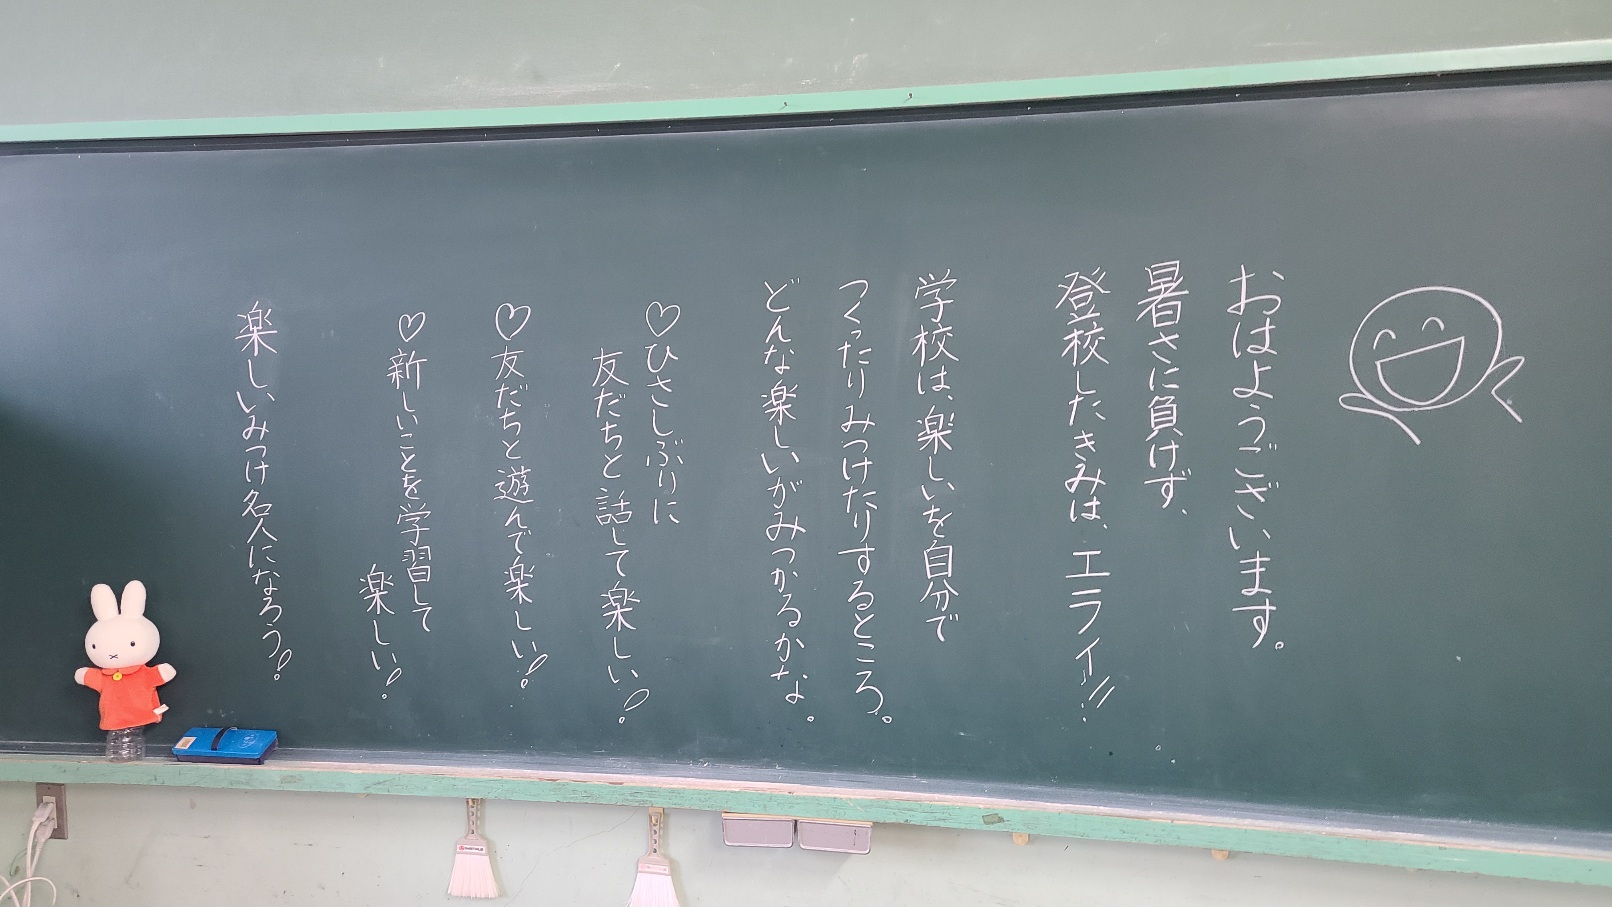 おはようございます。
暑さに負けず、
登校したきみは、エライ!!
学校は、楽しいを自分で
つくったりみつけたりするところ。
どんな楽しいがみつかるかな。
♡ひさしぶりに
友だちと話して楽しい!
♡友だちと遊んで楽しい!
♡新しいことを学習して
楽しい!
楽しいみつけ名人になろう!